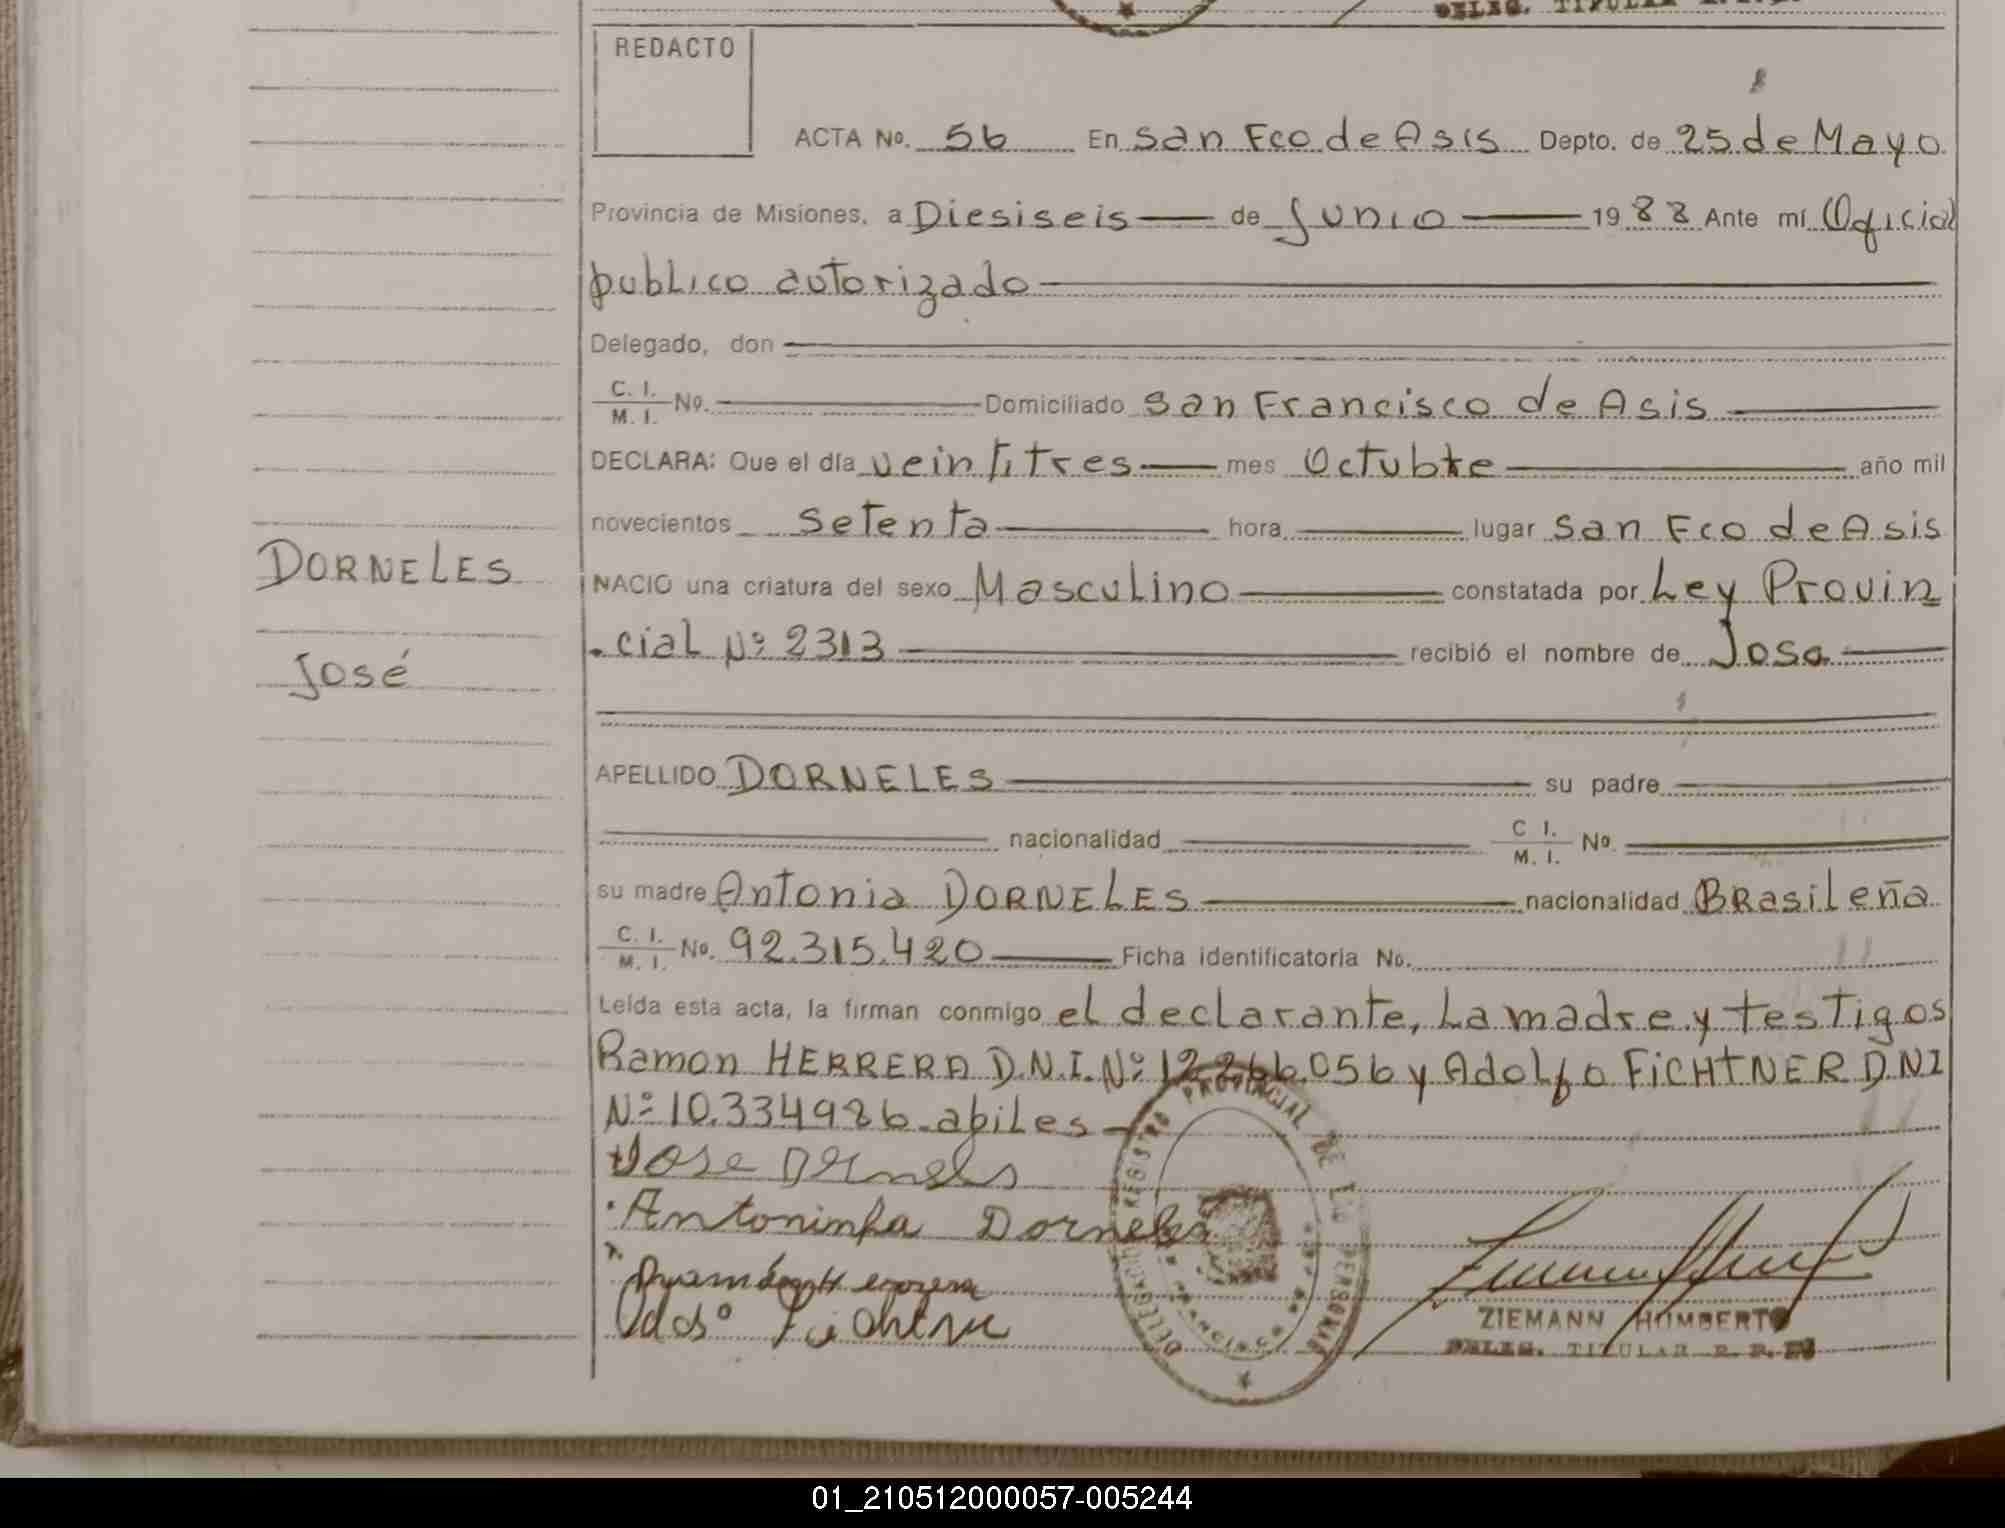 DELEG. TITULAR
REDACTO
ACTA No. 56 En San Fco de Asis Depto. de 25 de Mayo
Provincia de Misiones, a Diesiseis de Junio 1988 Ante mí Oficial
publico autorizado
Delegado, don
C. I. / M. I. No. Domiciliado San Francisco de Asis
DECLARA: Que el día veintitres mes Octubre año mil
novecientos Setenta hora lugar San Fco de Asis
DORNELES
NACIO una criatura del sexo Masculino constatada por Ley Provin
José
cial Nº 2313 recibió el nombre de Jose
APELLIDO DORNELES su padre
nacionalidad C I. / M. I. No.
su madre Antonia DORNELES nacionalidad BRasileña
C. I. / M. I. No. 92.315.420 Ficha identificatoria No.
Leída esta acta, la firman conmigo el declarante, La madre y testigos
Ramon HERRERA D.N.I. Nº 12.266.056 y Adolfo FiCHTNER DNI
Nº 10.334986. abiles
Jose Dornels
Antoninha Dorneles
Fichtne
REGISTRO PROVINCIAL DE LAS PERSONAS
ZIEMANN HUMBERTO
DELEG. TITULAR R. P.
01_210512000057-005244